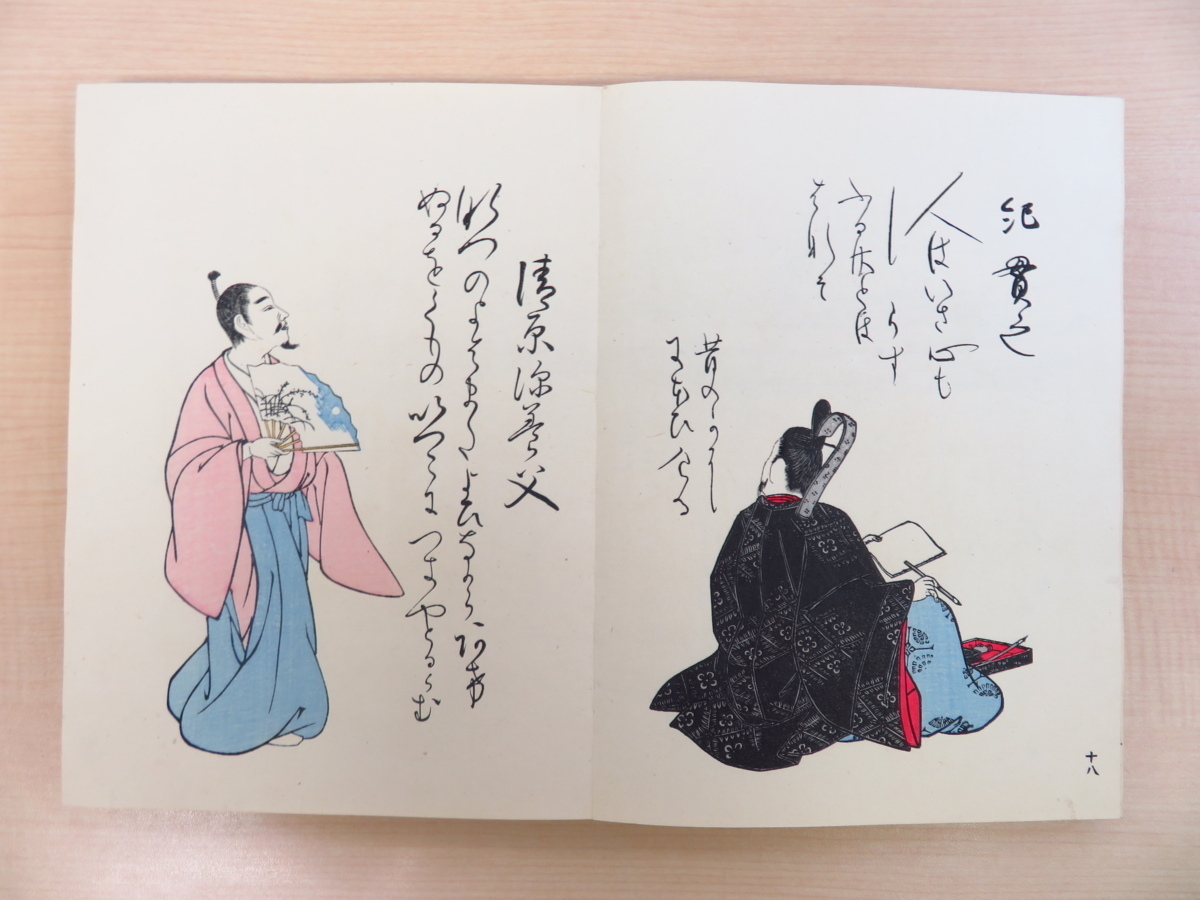 紀貫之
人はいさ心も
しらす
ふるさとは
はなそ
昔のかに
にほひける
十八
清原深養父
なつのよはまたよひなからあけ
ぬるをくものいつこにつきやとるらむ